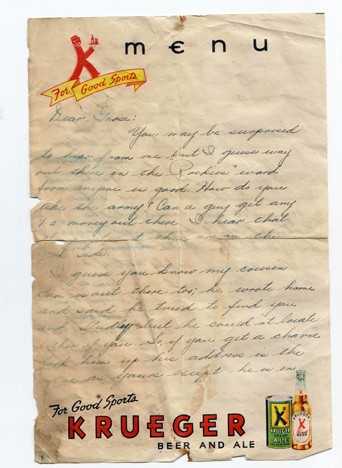 menu
For Good Sports
Dear Grose:
You may be surprised
to hear from me but I guess way
out there in the "Rockies" word
from anyone is good. How do you
like the army? Can a guy get any
money out there I hear that
the
Side.
I guess you know my cousin
is out there too; he wrote home
and said he tried to find you
and but he could n't locate
either of you. So, if you get a chance
look him up his address is the
same as yours except he is in
For Good Sports
KRUEGER
BEER AND ALE
KRUEGER
ALE